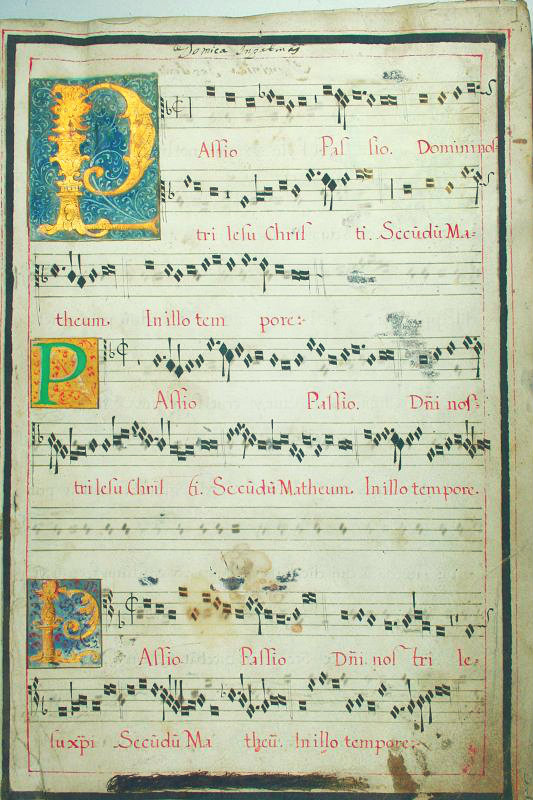 PAssio Pas sio. Domini nos-
tri Iesu Chris ti. Secūdū Ma-
theum. In illo tem pore:-
PAssio Passio. Dn̄i nos-
tri Iesu Chris ti. Secūdū Matheum. In illo tempore.
PAssio Passio Dn̄i nos tri Ie-
su xp̄i Secūdū Ma theū. In illo tempore:-